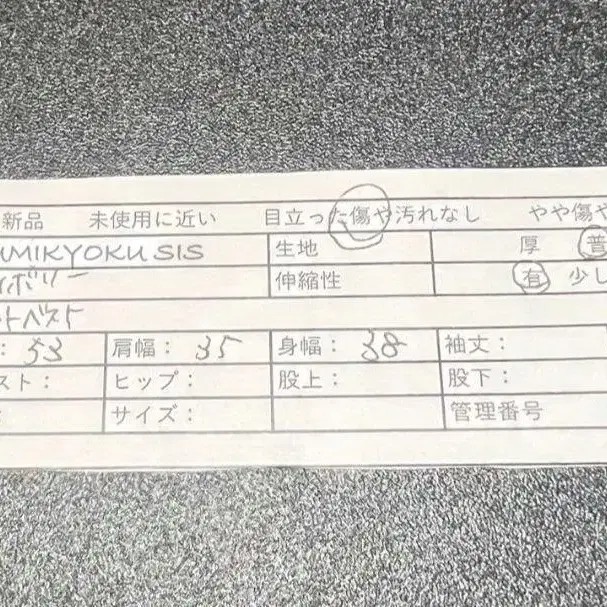 新品 未使用に近い 目立った傷や汚れなし やや傷や
UMIKYOKU SIS 生地 厚 普
イボリー 伸縮性 有 少し
ットベスト
: 53 肩幅: 35 身幅: 38 袖丈:
スト: ヒップ: 股上: 股下:
: サイズ: 管理番号